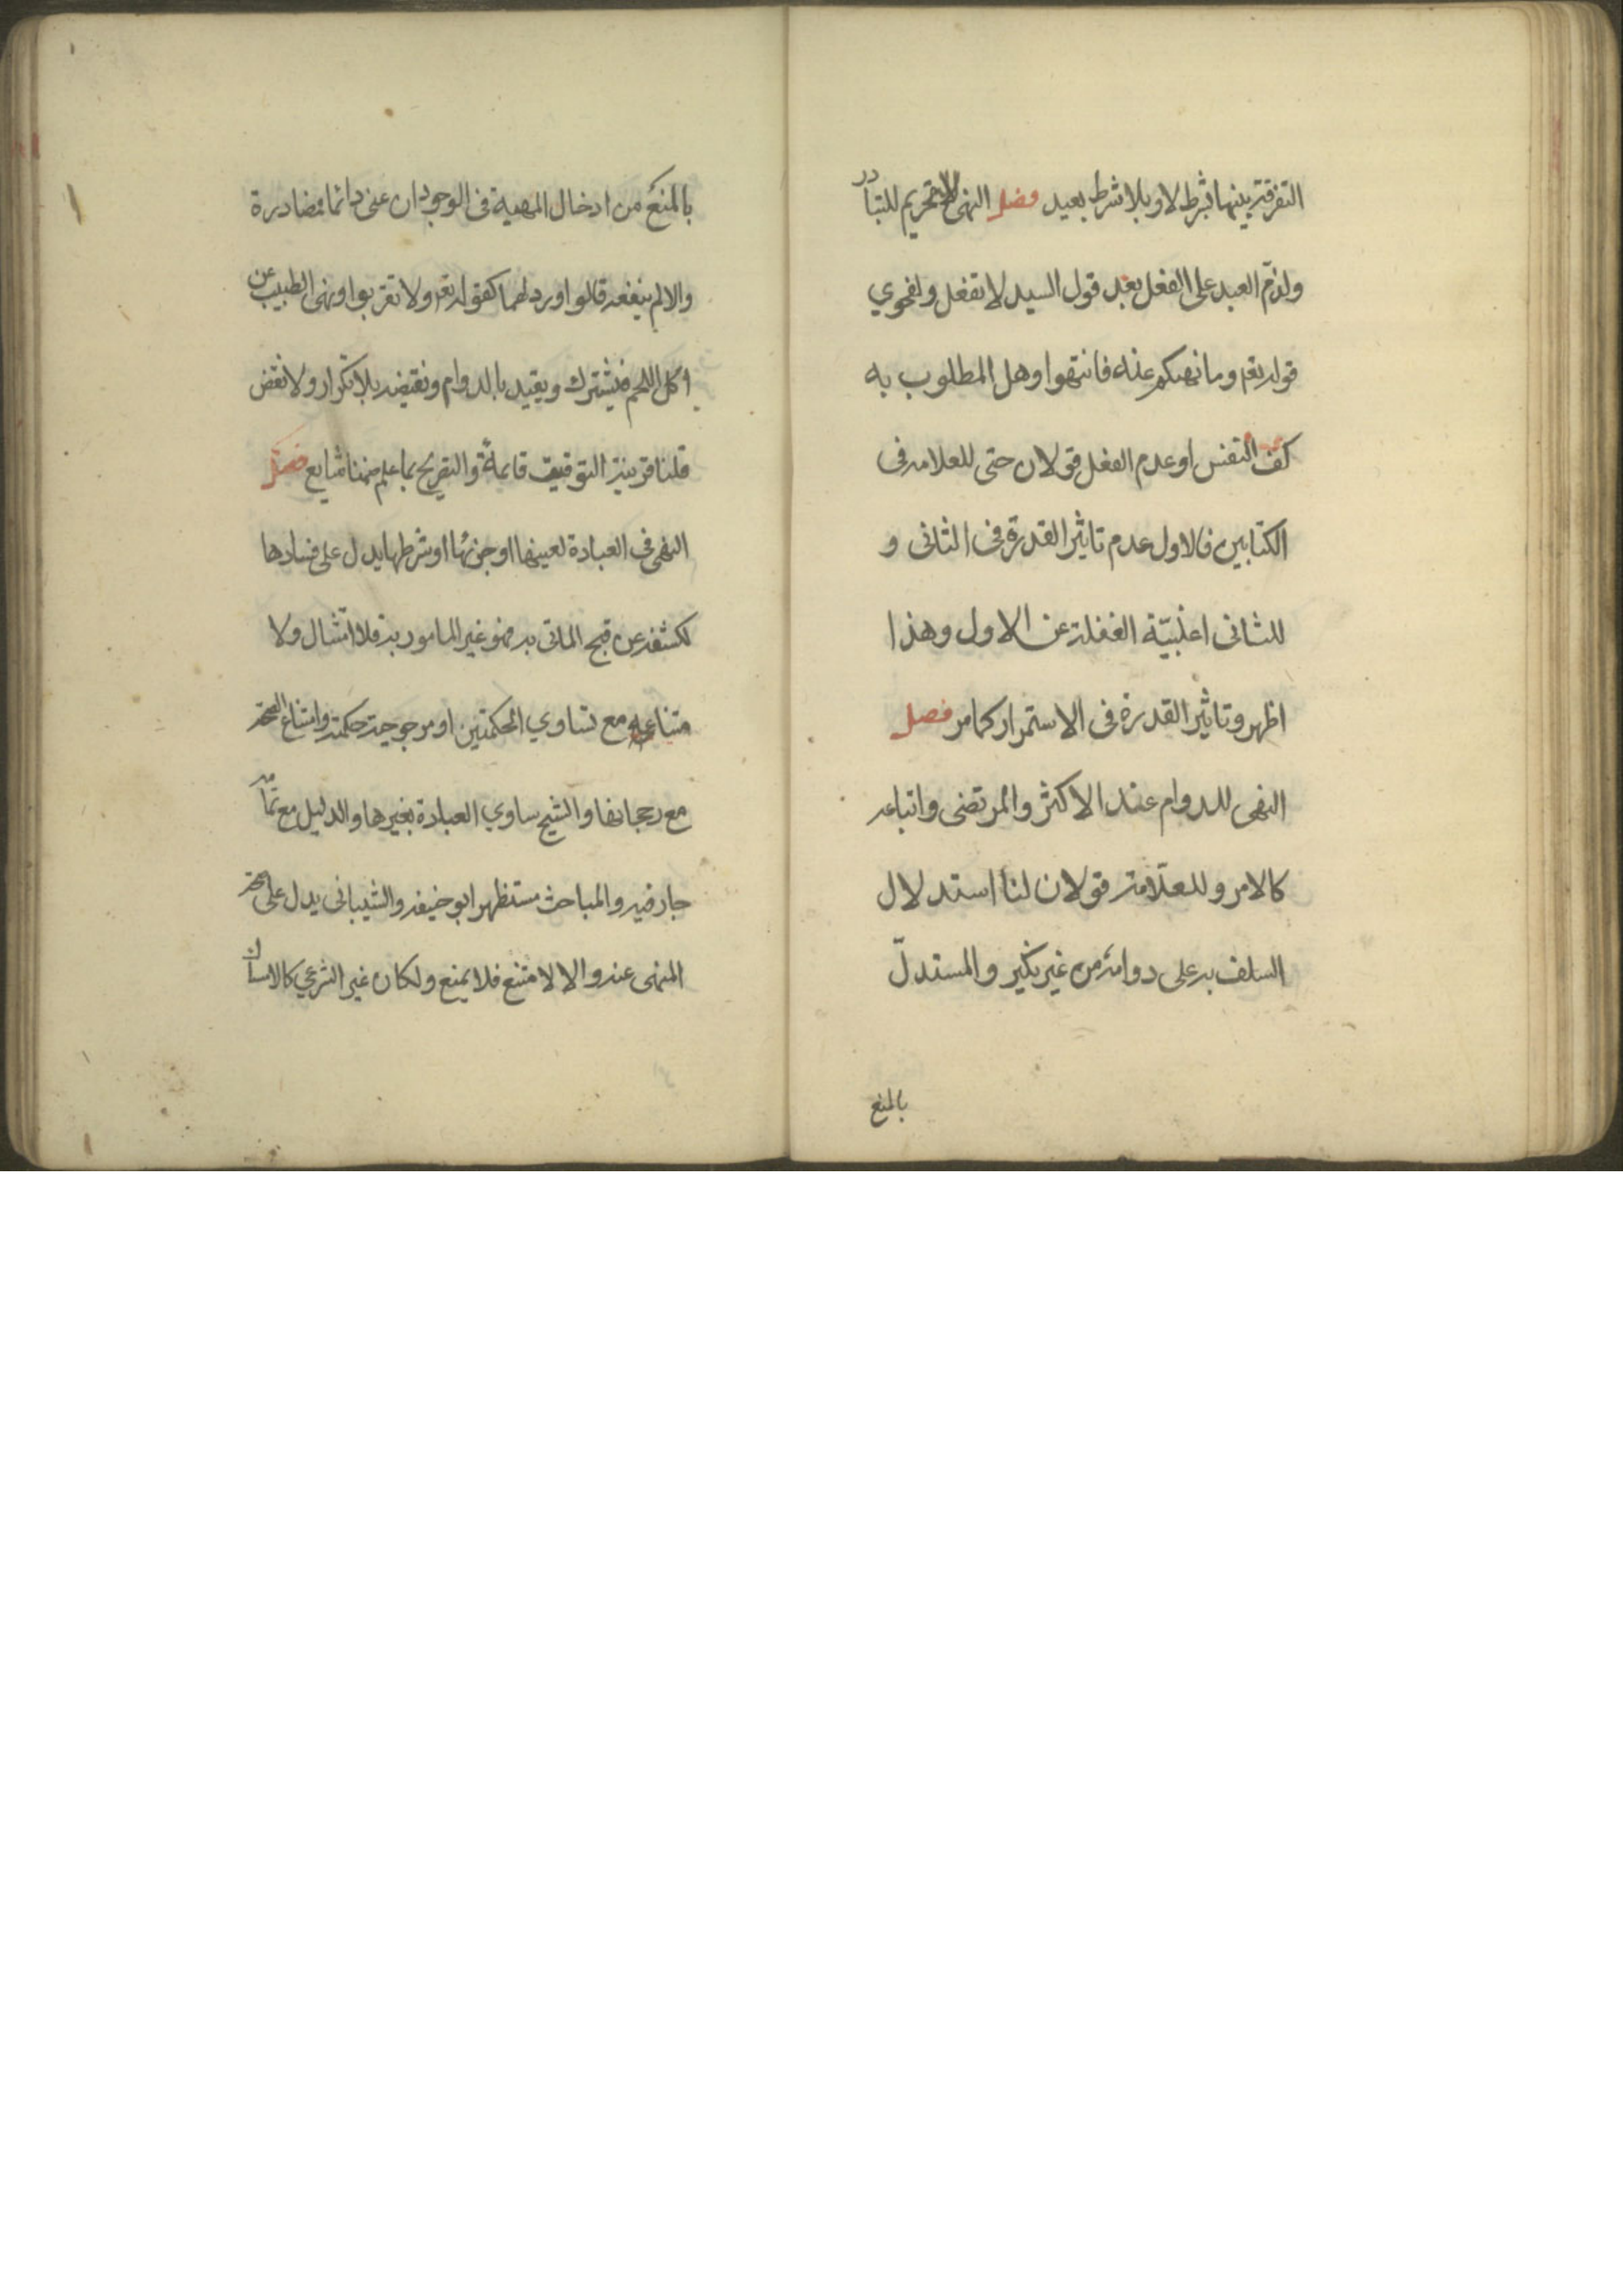 التفرقة بينهما بشرط لا وبلا شرط بعيد فصل النهى للتحريم للتبادر
ولذم العبد على الفعل بعد قول السيد لا تفعل ولفحوي
قوله تعم وما نهيكم عنه فانتهوا وهل المطلوب به
كف النفس او عدم الفعل قولان حتى للعلامه فى
الكتابين فالاول عدم تاثير القدرة فى الثانى و
للثانى اغلبيّة الغفلة عن الاول وهذا
اظهر وتاثير القدرة فى الاستمرار كما مر فصل
النهى للدوام عند الاكثر والمرتضى واتباعه
كالامر وللعلّامة قولان لنا استدلال
السلف به على دوامه من غير نكير والمستدلّ
بالمنع
بالمنع من ادخال المهية فى الوجود ان عنى دائما فمصادرة
والا لم ينفعه قالوا اورد لهما كقوله تعم ولا تقربوا ونهى الطبيب عن
اكل اللحم فيشترك ويقيد بالدوام ونقيضه بلا تكرار ولا نقض
قلنا قرينة التوقيف قايمة والتصريح بما علم ضمنا شايع فصل
النهى فى العبادة لعينها او جزئها او شرطها يدل على فسادها
لكشفه عن قبح الماتى به فهو غير المامور به فلا امتثال ولا
متناعه مع تساوي الحكمتين او مرجوحية حكمته وامتناع الصحة
مع رجحانها والشيخ ساوي العبادة بغيرها والدليل مع تمامه
جار فيه والمباحث مستظهر ابو حنيفه والشيبانى يدل على صحة
المنهى عنه والا لامتنع فلا يمنع ولكان غير الشرعي كالامساك